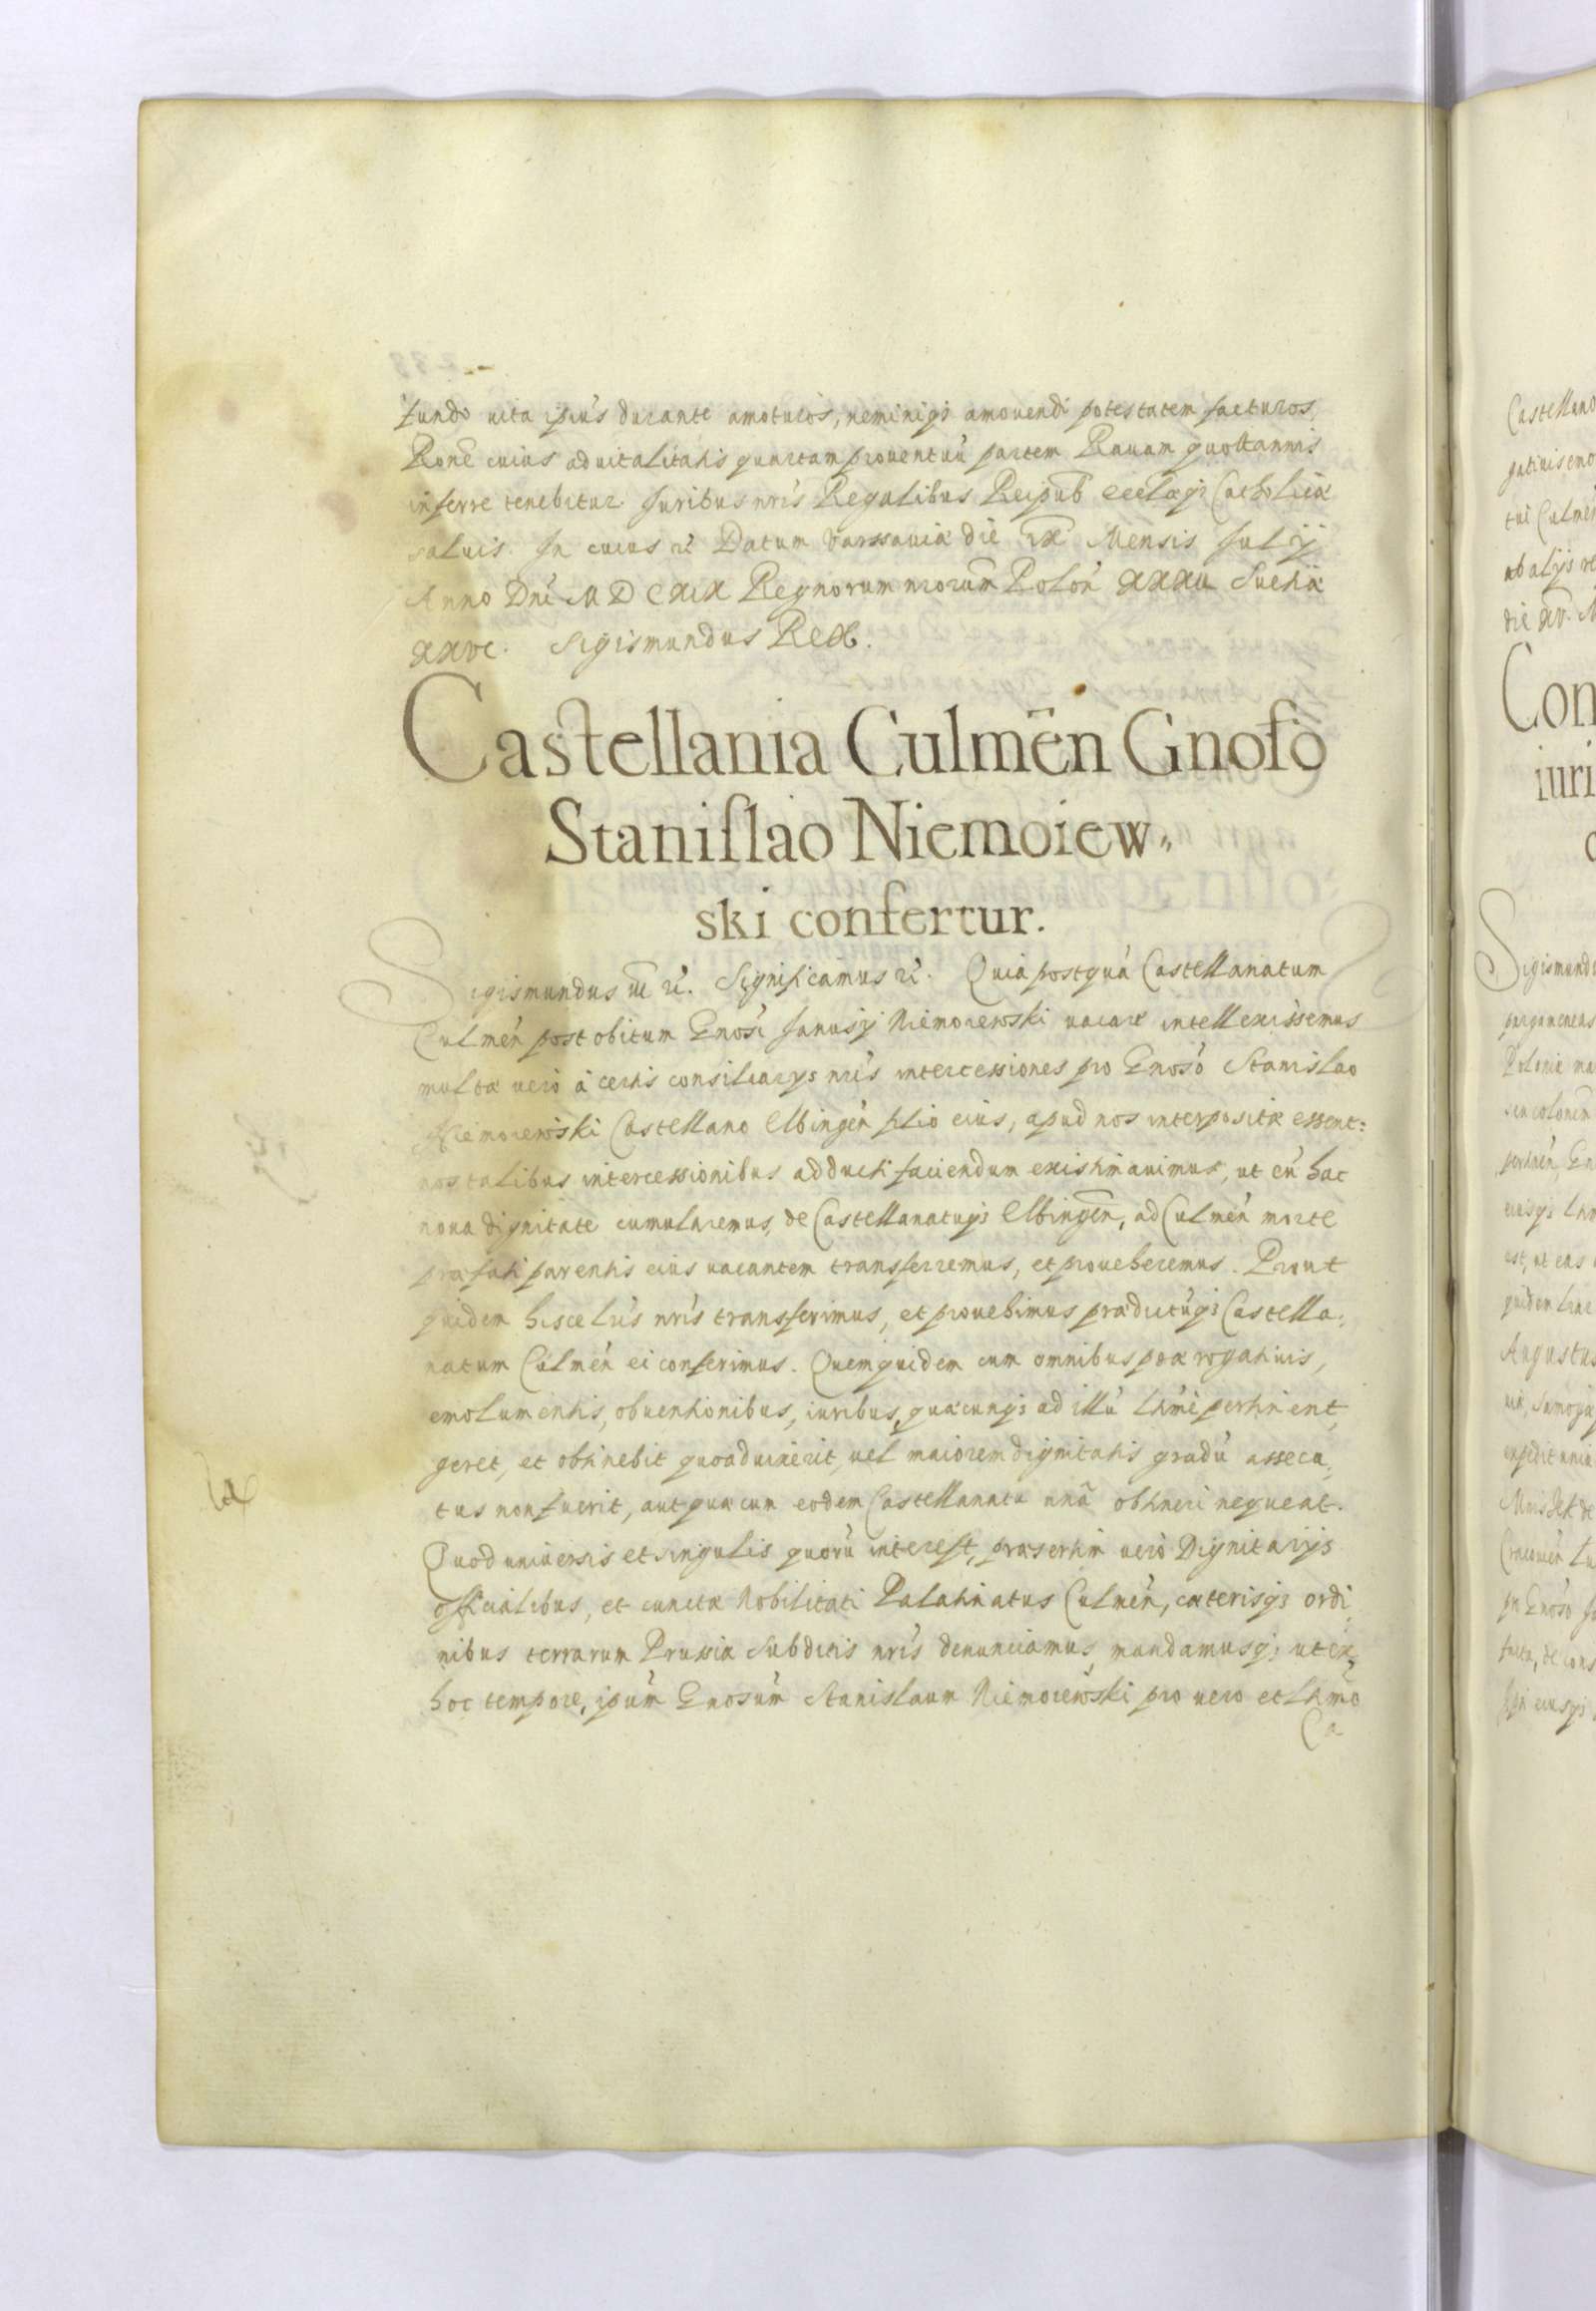 fundo uita ipiús durante amoturos, neminiq₃ amouendi potestatem facturos,
Rone cuius aduitalitatis quartam prouentuu partem Rauam quottannis
inferre tenebitur. Juribus nris Regalibus Reipub ecclaeq₃ Catholicae
saluis. In cuius rei Datum Varssauiae die IX Mensis Julij
Anno Dni MDCXIX Regnorum nrorum Polon XXXII Sueciae
XXVI. Sigismundus Rex.
Castellania Culmen Gnoso
Stanislao Niemoiew„
ski confertur.
Sigismundus III etc. Significamus etc. Quia postqua Castellanatum
Culmen post obitum Gnosi Janusij Niemoiewski uacare intellexissemus
multae uero à certis consiliarijs nris intercessiones pro Gnoso Stanislao
Niemoiewski Castellano Elbingen filio eius, apud nos interpositae essent:
nos talibus intercessionibus adducti faciendum existimauimus, ut eu hac
noua dignitate cumularemus, de Castellanatuq₃ Elbingen, ad Culmen morte
praefati parentis eius uacantem transferremus, et proueheremus. Prout
quidem hisce lris nris transferimus, et prouehimus praedictuq₃ Castella,
natum Culmen ei conferimus. Quem quidem cum omnibus praerogatiuis,
emolumentis, obuentionibus, iuribus, quaecunq₃ ad illu lttme pertinent,
geret, et obtinebit quoad uixerit, uel maiorem dignitatis gradu assecu,
tus non fuerit, aut quae cum eodem Castellanatu unà obtineri nequeat.
Quod uniuersis et singulis quoru interest, praesertim uero Dignitarijs
officialibus, et cunctae Nobilitati Palatinatus Culmen, caeterisq₃ ordi,
nibus terrarum Prussiae Subditis nris denunciamus, mandamusq₃ ut ex
hoc tempore, ipum Gnosum Stanislaum Niemoiewski pro uero et lttmo
Ca
Castellano
Con
iuri
Sigismundus
Augustus